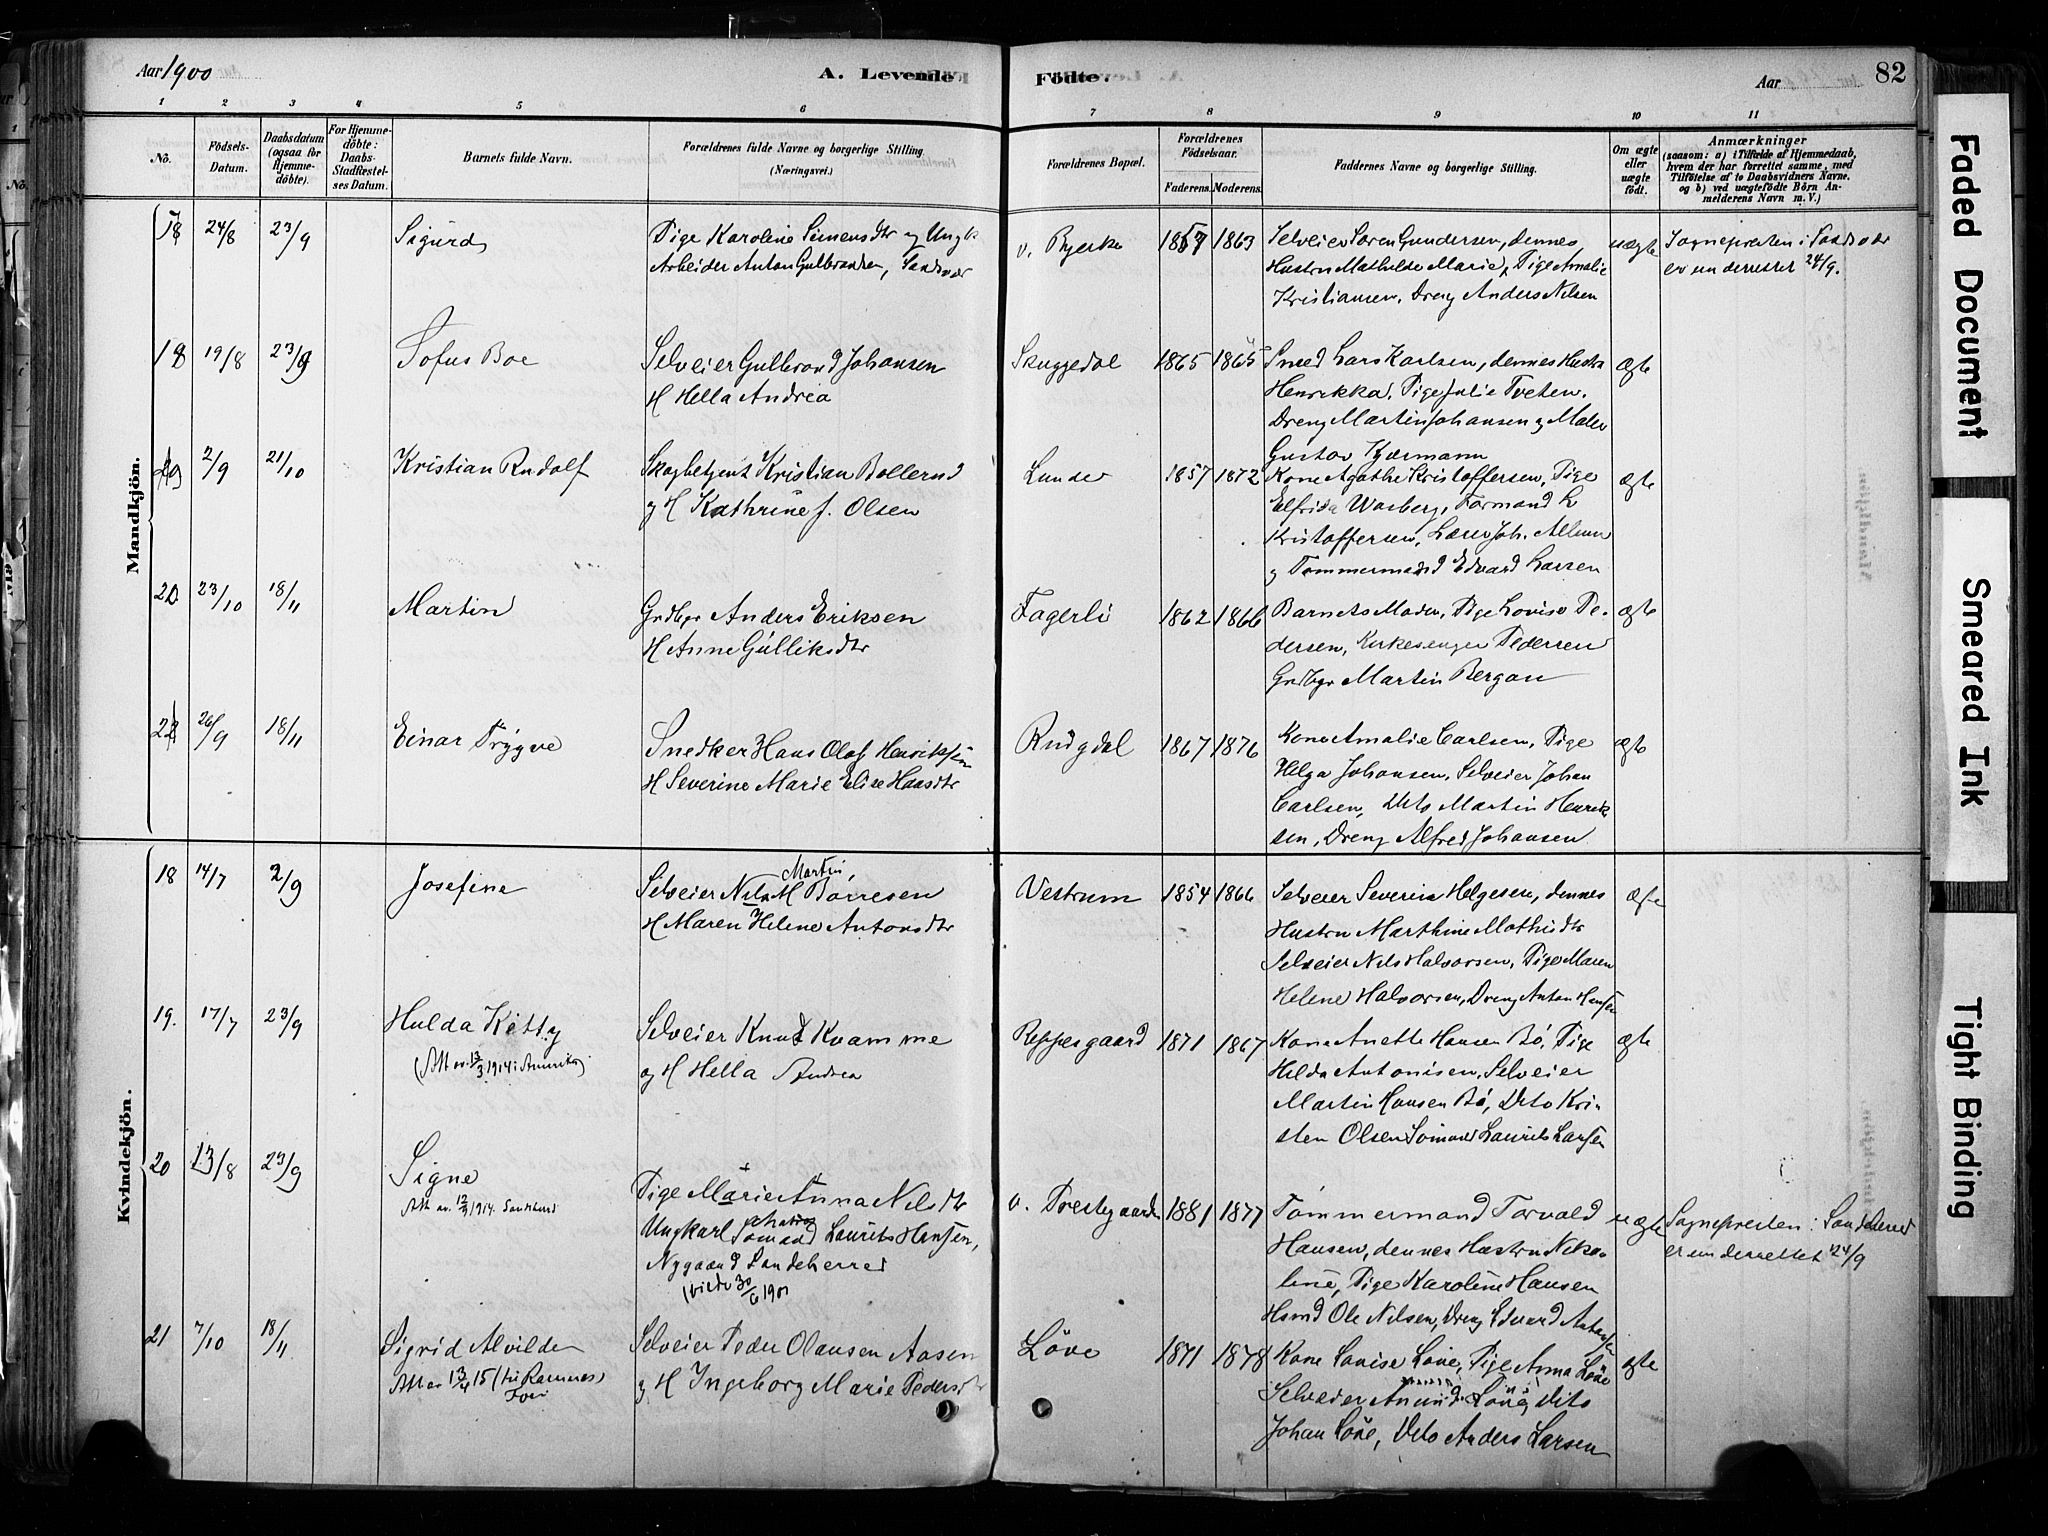 Aar 1900
A. Levende
Födte.
Aar
82
1 2 3 4 5 6 7 8 9 10 11
No.
Födsels-Datum.
Daabsdatum (ogsaa for Hjemme-döbte).
For Hjemme-döbte: Daabs-Stadfæstel-ses Datum.
Barnets fulde Navn.
Forældrenes fulde Navne og borgerlige Stilling (Næringsvei.)
Forældrenes Bopæl.
Forældrenes Födselsaar.
Faderens. Moderens.
Faddernes Navne og borgerlige Stilling.
Om ægte eller uægte födt.
Anmærkninger
(saasom: a) i Tilfælde af Hjemmedaab, hvem der har forrettet samme, med Tilföielse af to Daabsvidners Navne. og b) ved uægtefödte Börn An-melderens Navn m. V.)
Mandkjön.
17 24/8 23/9 Sigurd
Pige Karoline Simensdtr og Ungk
Arbeider Anton Gulbrandsen, Sandsvær
v. Bjerke 1867 1863
Selveier Soren Gundersen, dennes
Hustru Mathilde Marie, Pige Amalie
Kristiansen, Dreng Anders Nilsen
uægte
Sognepresten i Sandsvær
er underrettet 24/9.
18 19/8 23/9 Sofus Boe
Selveier Gulbrand Johansen
H Hella Andrea
Skuggedal 1865 1865
Smed Lars Karlsen, dennes Hustru
Henrikka, Pige Julie Tveten,
Dreng Martin Johansen og Maler
Gustav Kjærmann
ægte
19 2/9 21/10 Kristian Rudolf
Skogbetjent Kristian Bollerud
og H Kathrine f. Olsen
Lunde 1857 1872
Kone Agathe Kristoffersen, Pige
Elfrida Warberg, Formand L
Kristoffersen, Lærer Joh. Allum
og Tømmermand Edvard Larsen
ægte
20 23/10 18/11 Martin
Grdbgr Anders Eriksen
H Anne Gulliksdtr
Fagerli 1862 1866
Barnets Moder, Pige Lovise Pe-
dersen, Kirkesanger Pedersen
Grdbgr Martin Bergan
ægte
21 26/9 18/11 Einar Trygve
Snedker Hans Olaf Henriksen
H Severine Marie Elise Hansdtr
Rugdal 1867 1876
Kone Amalie Carlsen, Pige
Helga Johansen, Selveier Johan
Carlsen, Dito Martin Henrik-
sen, Dreng Alfred Johansen
ægte
Kvindekjön.
18 14/7 2/9 Josefine
Martin,
Selveier Nils M Borresen
H Maren Helene Antonsdtr
Vestrum 1854 1866
Selveier Severin Helgesen, dennes
Hustru Marthine Mathisdtr
Selveier Nils Halvorsen, Pige Maren
Helene Halvorsen, Dreng Anton Hansen
ægte
19. 17/7 23/9 Hulda Kitty
(Att av. 13/3 1914 i Amerika)
Selveier Knut Kvamme
og H Hella Andrea
Reppesgaard 1871 1867
Kone Anette Hansen Bö, Pige
Hilda Antonisen, Selveier
Martin Hansen Bö, Dito Kri-
sten Olsen Sömand Laurits Larsen
ægte
20 13/8 23/9 Signe
Att av. 12/9 1914.
Pige Marie Anna Nilsdtr
Ungkarl Sömand Laurits Hansen,
Nygaard Sandeherred
(viede 30/6 1901
v. Prestegaarden 1881 1877
Tömmermand Torvald
Hansen, dennes Hustru Niko-
line, Pige Karoline Hansen
Hsmd Ole Nilsen, Dreng Edvard Antonsen
uægte
Sognepresten i Sandeherred
er underrettet 24/9
21 7/10 18/11 Sigrid Alvilde
Att av 13/4 15 (til Ramnes)
Selveier Peder Olausen Aasen
og H Ingeborg Marie Pedersdtr
Löve 1871 1878
Kone Lovise Löve, Pige Anna Löve
Selveier Amund Löve, Dito
Johan Löve, Dito Anders Larsen
ægte
Faded Document
Smeared Ink
Tight Binding